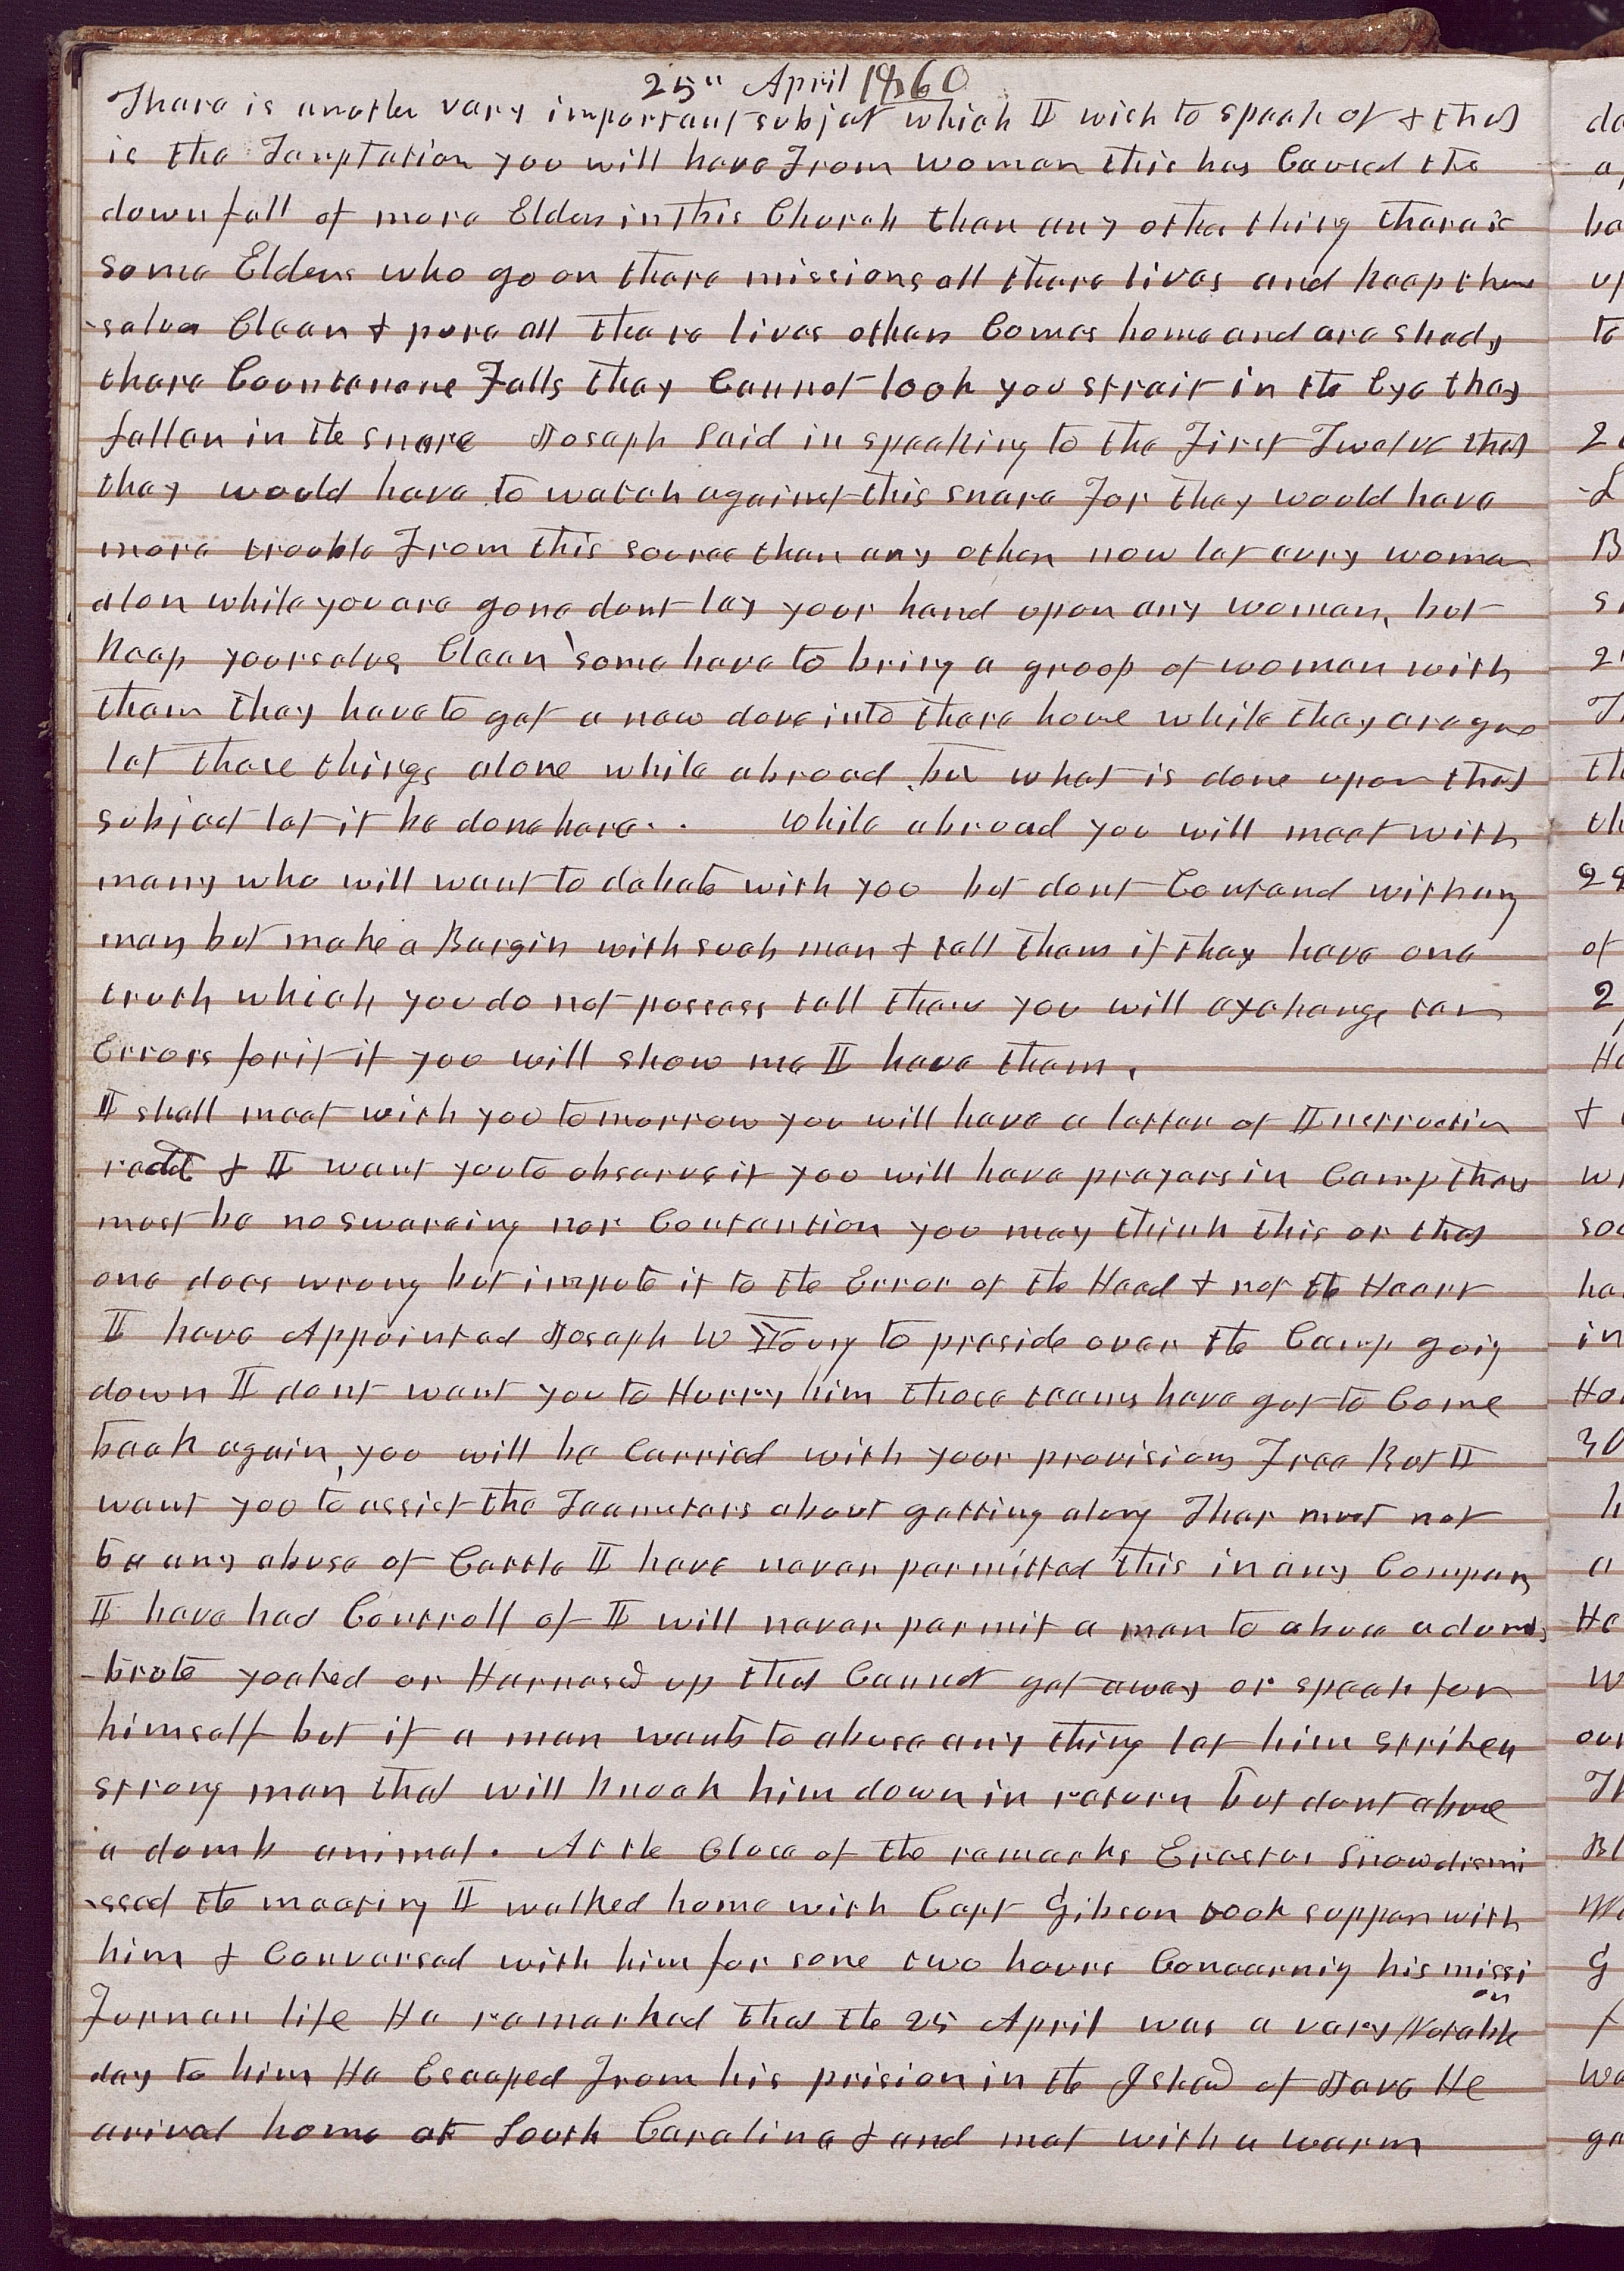 25" April 1860
There is another very important subject which I wish to speak of & that
is the Temptation you will have From women this has Caused the
down fall of more Elders in this Church than any other thing there is
some Elders who go on there missions all there lives and keep them
-selves Clean & pure all there lives others Comes home and are shady
there Countanane Falls they Cannot look you strait in the Eye they
fallen in the snare Joseph Said in speaking to the First Twelve that
they would have to watch against this snare For they would have
more trouble From this source than any other now let evry woman
alon while you are gone dont lay your hand upon any woman, but
Keep yourselves Clean some have to bring a groop of women with
them they have to get a new dove into there house while they are gone
let those things alone while abroad, but what is done upon that
subject let it be done here.. While abroad you will meet with
many who will want to debate with you but dont Contend with any
man but make a Bargin with such men & tell them if they have one
truth which you do not possess tell them you will exchange ten
Errors for it if you will show me I have them.
I shall meet with you tomorrow you will have a letter of Instruction
read & I want you to observe it you will have prayers in Camp there
must be no swareing nor Contention you may think this or that
one does wrong but impute it to the Error of the Head & not the Heart
I have Appointed Joseph W Young to preside over the Camp going
down I dont want you to Hurry him those teams have got to Come
back again, you will be Carried with your provisions Free But I
want you to assist the Teamsters about getting along Ther must not
be any abuse of Cattle I have never permitted this in any Company
I have had Controll of I will never permit a man to abuse a dumb
-brute yoaked or Harnesed up that Cannot get away or speak for
himself but if a man wants to abuse any thing let him strike a
strong man that will knock him down in return but dont abuse
a domb animal. At the Close of the remarks Erastus Snow dismi
-ssed the meeting I walked home with Capt Gibson took supper with
him & Conversed with him for some two hours Concernig his missi
on
Former life He remarked that the 25 April was a very Notable
day to him He Escaped From his prision in the Island of Java He
arived home at South Caralina & and met with a warm